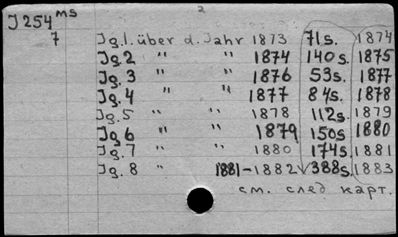 J 254 ms 2
7 Jg.1. über d. Jahr 1873 71s. 1874
Jg.2 " " 1874 140s. 1875
Jg.3 " " 1876 53s. 1877
Jg.4 " " 1877 84s. 1878
Jg.5 " " 1878 112s. 1879
Jg.6 " " 1879 150s 1880
Jg.7 " " 1880 174s. 1881
Jg.8 " 1881-1882 388s. 1883
см. след карт.